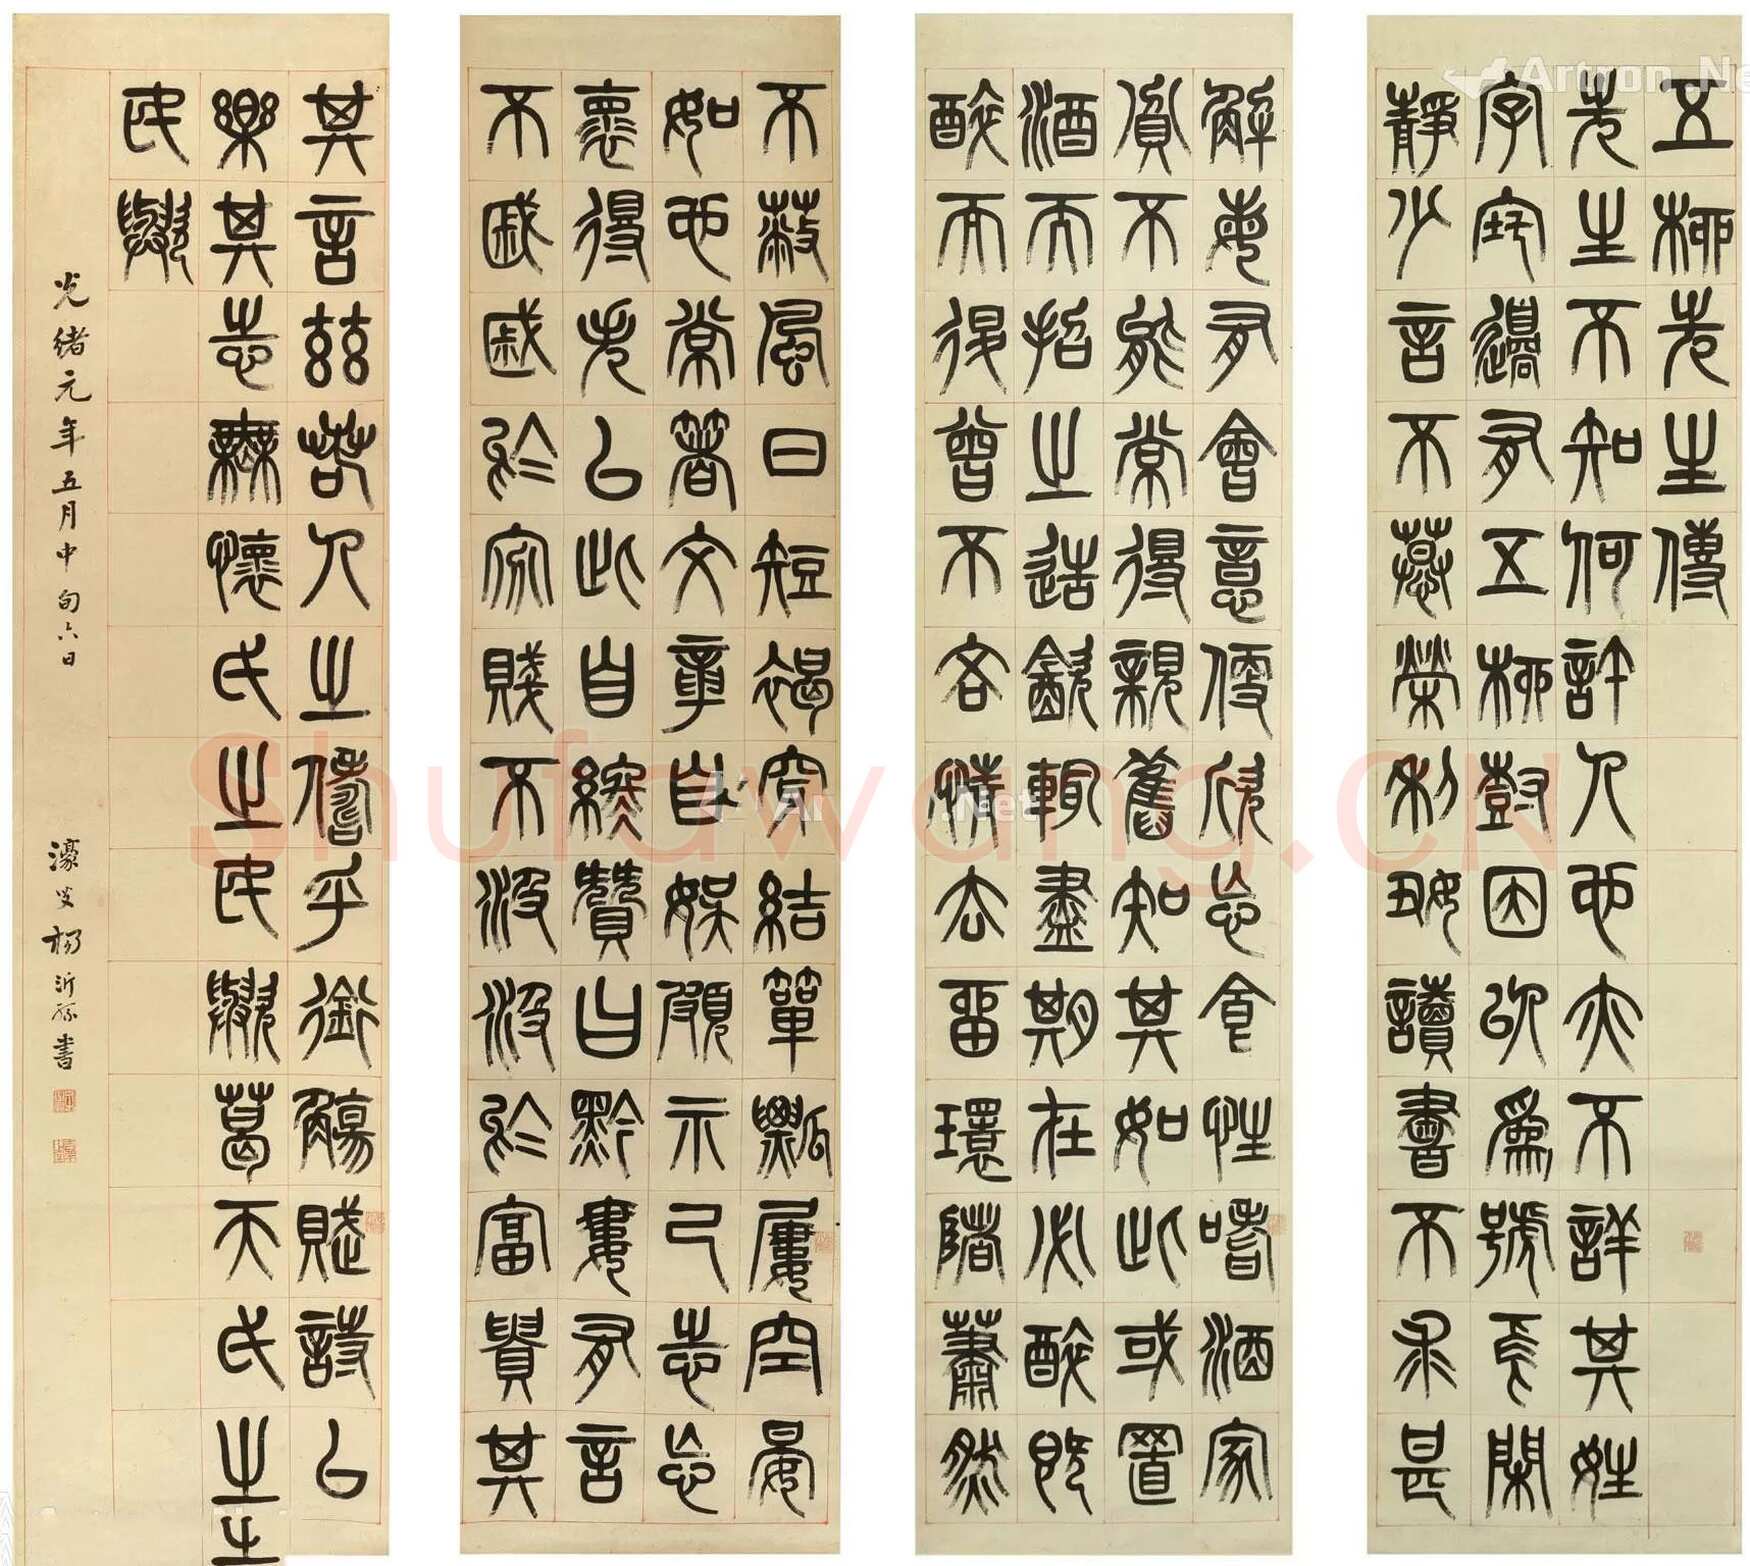 五柳先生傳
先生不知何許人也亦不詳其姓
字宅邊有五柳樹因以為號焉閑
靜少言不慕榮利好讀書不求甚
解每有會意便欣忘食性嗜酒家
貧不能常得親舊知其如此或置
酒而招之造飲輒盡期在必醉既
醉而退曾不吝情去留環堵蕭然
不蔽風日短褐穿結簞瓢屢空晏
如也常著文章自娛頗示己志忘
懷得失以此自終贊曰黔婁有言
不戚戚於貧賤不汲汲於富貴其
其言茲若人之儔乎銜觴賦詩以
樂其志無懷氏之民歟葛天氏之
民歟
光緒元年五月中旬六日
濠叟楊沂孫書
Shufawang.CN
Artron.Ne